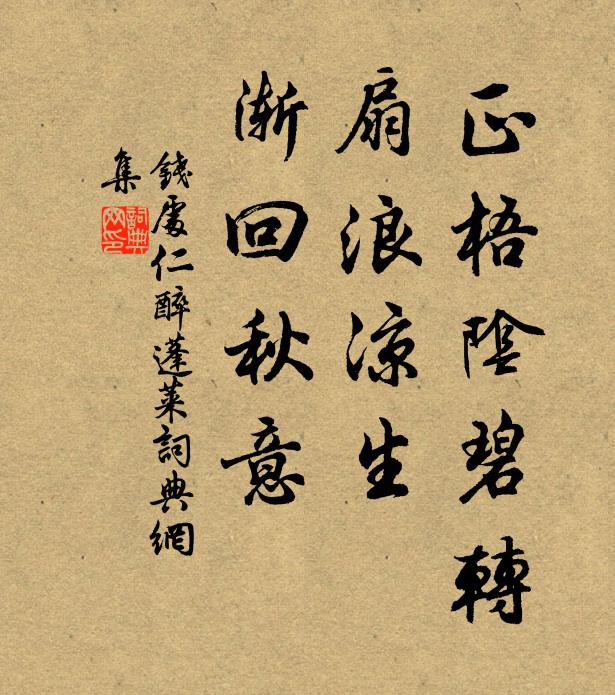 正梧陰碧轉
扇浪凉生
漸回秋意
錢處仁醉蓬萊詞典網
集
詞典
网印